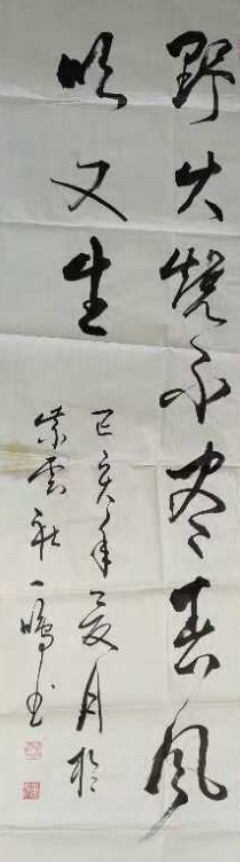 野火烧不尽春风
吹又生
己亥年夏月於
紫云社一鸣书